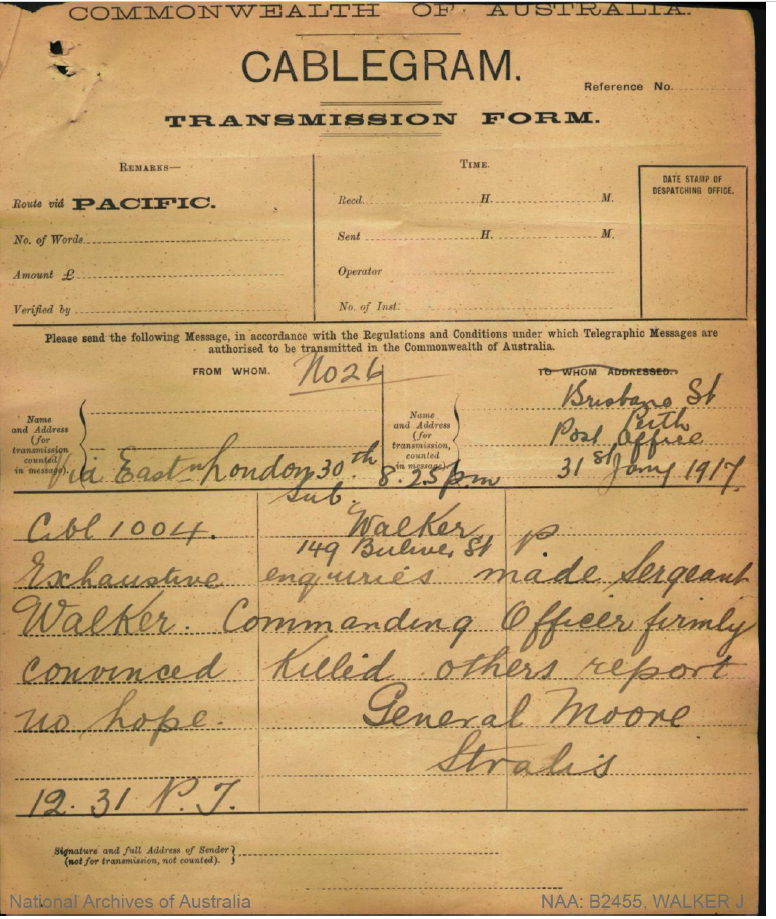 COMMONWEALTH OF AUSTRALIA.
CABLEGRAM.
Reference No.
TRANSMISSION FORM.
REMARKS—
TIME.
DATE STAMP OF
DESPATCHING OFFICE.
Route viâ PACIFIC.
Recd. H. M.
No. of Words
Sent H. M.
Amount £
Operator
Verified by
No. of Inst.
Please send the following Message, in accordance with the Regulations and Conditions under which Telegraphic Messages are
authorised to be transmitted in the Commonwealth of Australia.
FROM WHOM. No 26
TO WHOM ADDRESSED.
Brisbane St
Perth
Post Office
Name
and Address
(for
transmission
counted
in message).
Name
and Address
(for
transmission,
counted
in message).
Via East London 30th 8.25pm 31st Jany 1917.
Sub.
Cbl 1004. Walker P
149 Bulwer St
Exhaustive enquiries made Sergeant
Walker. Commanding Officer firmly
convinced killed others report
no hope. General Moore
Stralis
12.31 P.T.
Signature and full Address of Sender
(not for transmission, not counted).
National Archives of Australia
NAA: B2455, WALKER J